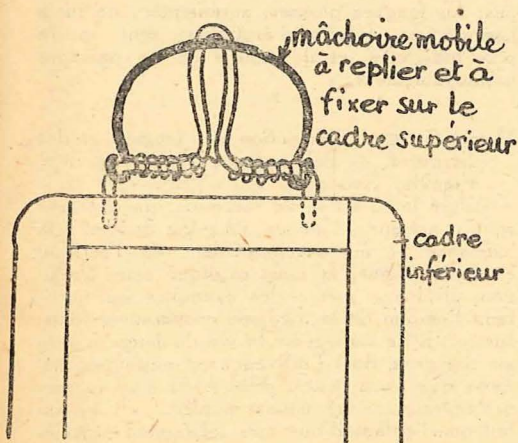 mâchoire mobile
à replier et à
fixer sur le
cadre supérieur
cadre
inférieur